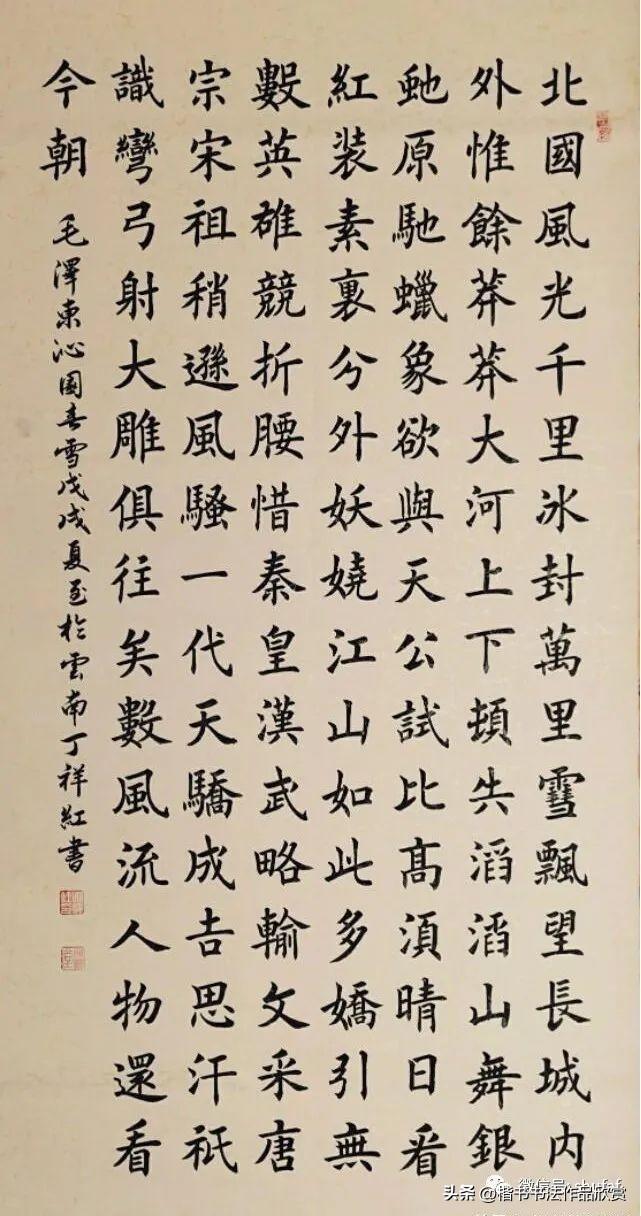 北國風光千里冰封萬里雪飄望長城内
外惟餘莽莽大河上下頓失滔滔山舞銀
虵原馳蠟象欲與天公試比高須晴日看
紅裝素裹分外妖嬈江山如此多嬌引無
數英雄競折腰惜秦皇漢武略輸文采唐
宗宋祖稍遜風騷一代天驕成吉思汗祇
識彎弓射大雕俱往矣數風流人物還看
今朝
毛澤東沁園春雪戊戌夏至於雲南丁祥紅書
微信号:
头条 @楷书书法作品欣赏